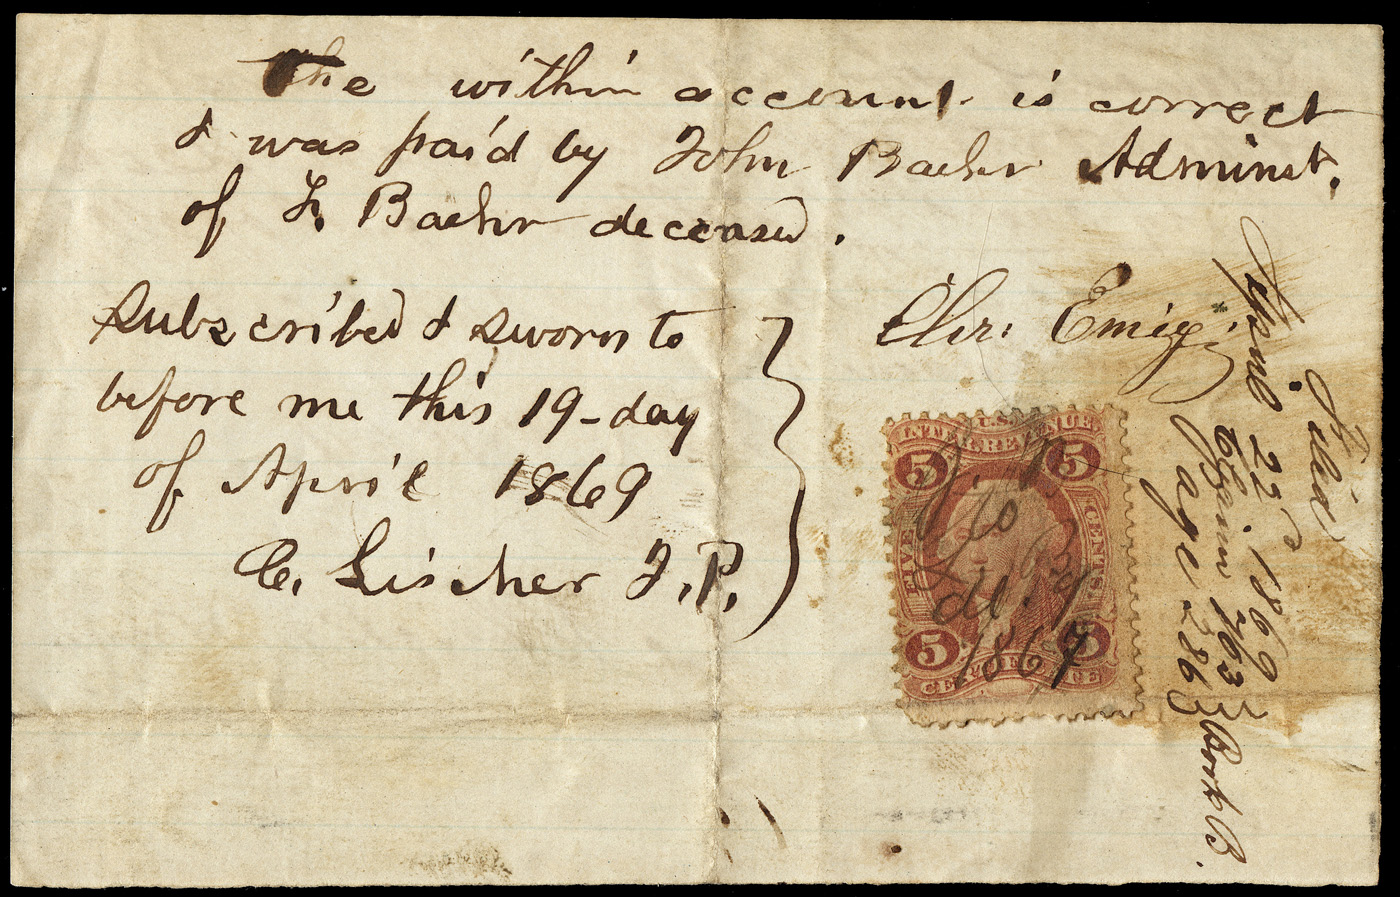 The within account is correct
& was paid by John Baehr Adminst.
of F. Baehr deceased.
Subscribed & sworn to
before me this 19-day
of April 1869
C. Lischer J.P.
Chr. Emig
U.S.
INTER. REVENUE
5 5
FIVE CENTS.
5 5
CERTIFICATE
1867
Filed
April 22d 1869
Claim 763
Page 286 } Book B.